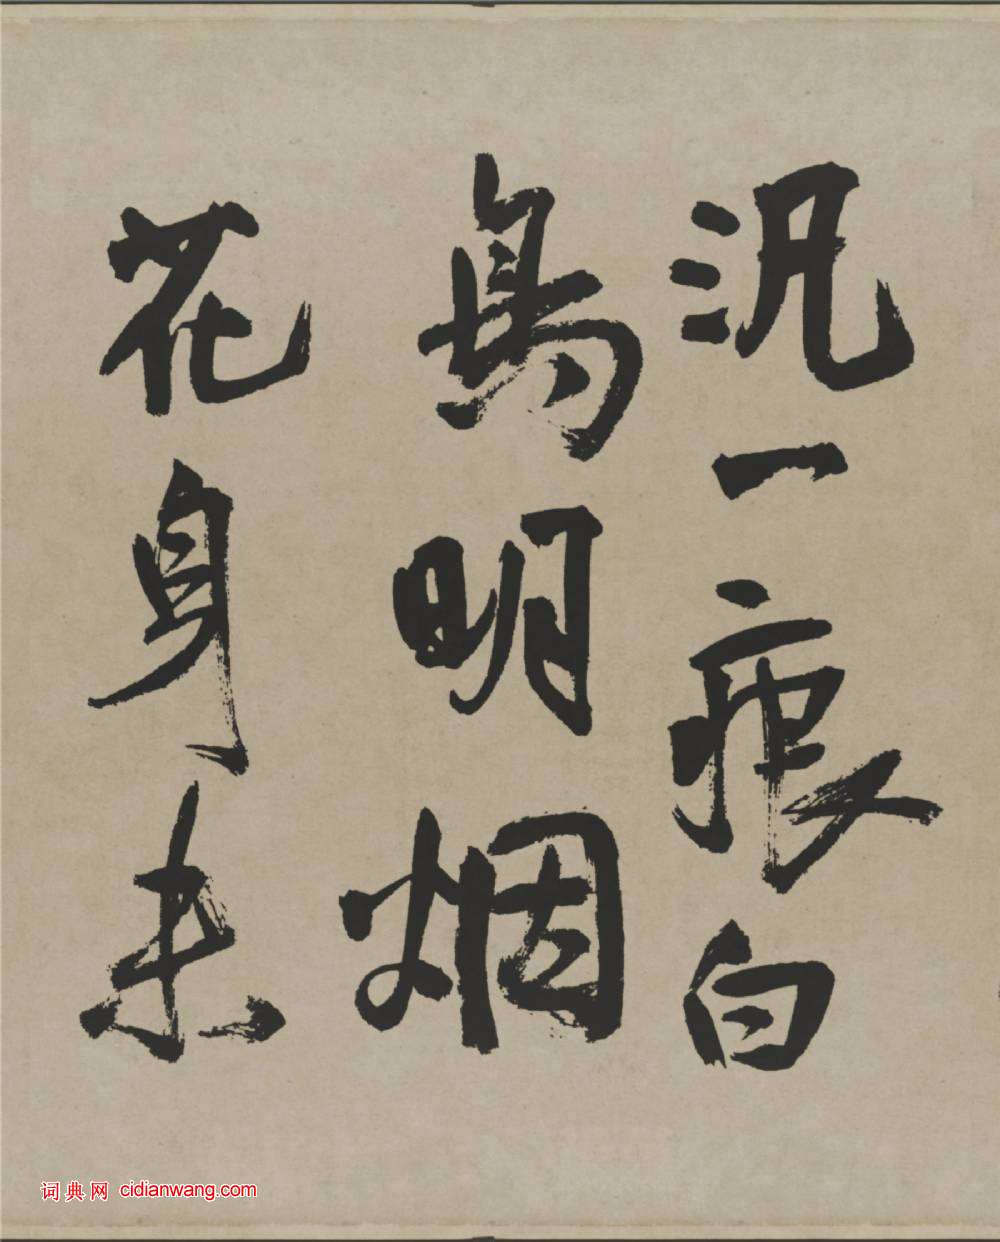 汎一痕白
鳥明烟
花身未
词典网 cidianwang.com